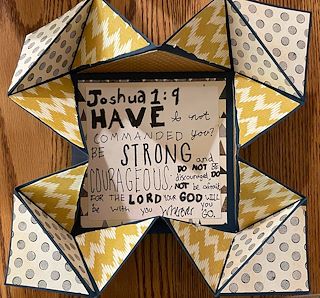 Joshua 1:9
HAVE I not
COMMANDED you?
BE STRONG and
COURAGEOUS. DO NOT BE
discouraged, DO
NOT be afraid
FOR THE LORD your GOD WILL
be with you WHEREVER
YOU GO.